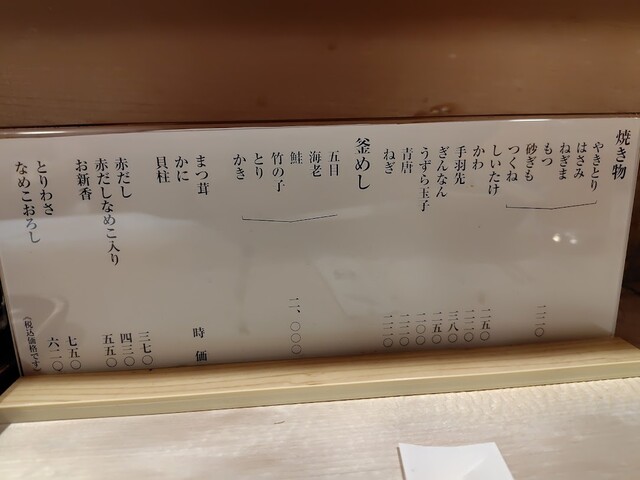 焼き物
やきとり
はさみ
ねぎま
もつ
砂ぎも
つくね
二二〇
しいたけ 二五〇
かわ 二二〇
手羽先 三八〇
ぎんなん 二五〇
うずら玉子 二〇〇
青唐 二二〇
ねぎ 二二〇
釜めし
五目
海老
鮭
竹の子
とり
かき
二、〇〇〇
まつ茸
かに
貝柱
時価
赤だし 三七〇
赤だしなめこ入り 四三〇
お新香 五五〇
とりわさ 七五〇
なめこおろし 六二〇
(税込価格です)